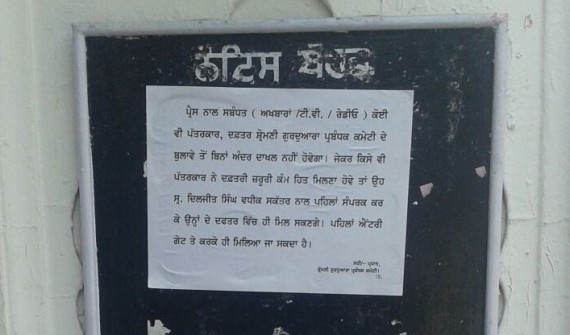 ਨੋਟਿਸ ਬੋਰਡ
ਪ੍ਰੈਸ ਨਾਲ ਸਬੰਧਤ ( ਅਖਬਾਰਾਂ /ਟੀ.ਵੀ. / ਰੇਡੀਓ ) ਕੋਈ
ਵੀ ਪੱਤਰਕਾਰ, ਦਫ਼ਤਰ ਸ਼੍ਰੋਮਣੀ ਗੁਰਦੁਆਰਾ ਪ੍ਰਬੰਧਕ ਕਮੇਟੀ ਦੇ
ਬੁਲਾਵੇ ਤੋਂ ਬਿਨਾਂ ਅੰਦਰ ਦਾਖਲ ਨਹੀਂ ਹੋਵੇਗਾ। ਜੇਕਰ ਕਿਸੇ ਵੀ
ਪੱਤਰਕਾਰ ਨੇ ਦਫ਼ਤਰੀ ਜ਼ਰੂਰੀ ਕੰਮ ਹਿਤ ਮਿਲਣਾ ਹੋਵੇ ਤਾਂ ਉਹ
ਸ੍ਰ. ਦਿਲਜੀਤ ਸਿੰਘ ਵਧੀਕ ਸਕੱਤਰ ਨਾਲ ਪਹਿਲਾਂ ਸੰਪਰਕ ਕਰ
ਕੇ ਉਨ੍ਹਾਂ ਦੇ ਦਫਤਰ ਵਿੱਚ ਹੀ ਮਿਲ ਸਕਣਗੇ। ਪਹਿਲਾਂ ਐਂਟਰੀ
ਗੇਟ ਤੇ ਕਰਕੇ ਹੀ ਮਿਲਿਆ ਜਾ ਸਕਦਾ ਹੈ।
ਸਹੀ/- ਪ੍ਰਧਾਨ,
ਸ਼੍ਰੋਮਣੀ ਗੁਰਦੁਆਰਾ ਪ੍ਰਬੰਧਕ ਕਮੇਟੀ।